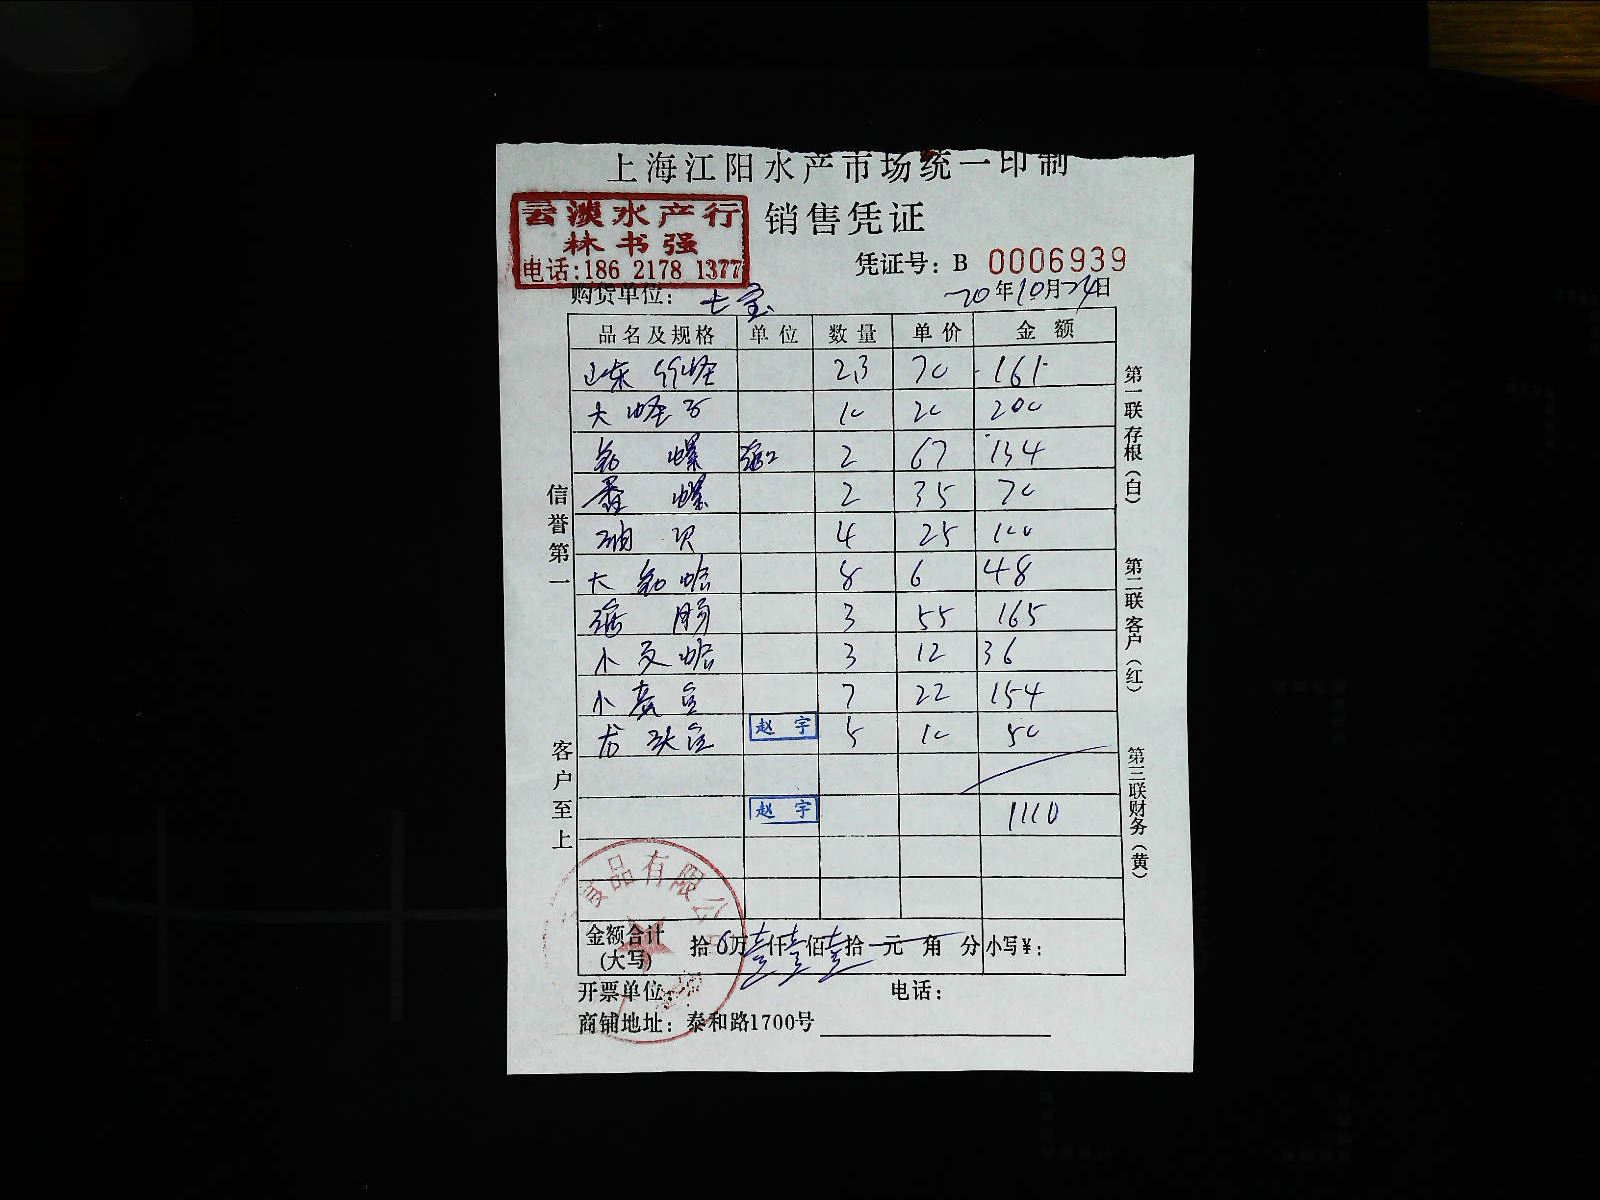 上海江阳水产市场统一印制
云淡水产行
林书强
电话:186 2178 1377
销售凭证
凭证号: B 0006939
购货单位: 七宝
20年10月24日
品名及规格 单位 数量 单价 金额
山东 竹蛏 2.3 70 161
大蛏子 10 20 200
螺 2 67 134
香螺 2 35 70
贝 4 25 100
大 蛤 8 6 48
3 55 165
小 蛤 3 12 36
小 7 22 154
龙头 赵宇 5 10 50
赵宇 1110
金额合计(大写) 拾0万壹仟壹佰壹拾元角分 小写¥:
开票单位: 电话:
商铺地址: 泰和路1700号
信誉第一
客户至上
第一联存根(白)
第二联客户(红)
第三联财务(黄)
食品有限公